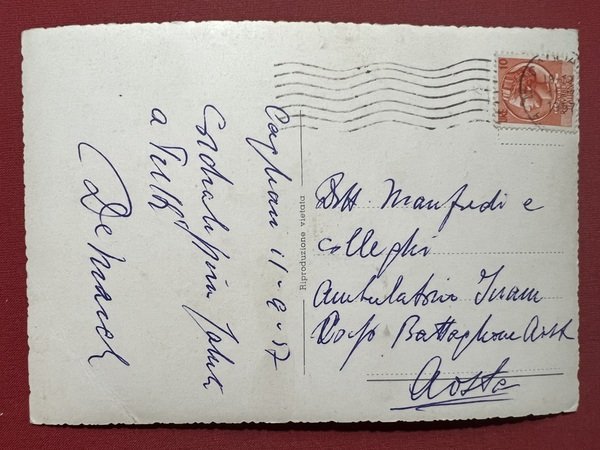 Cagliari 11-9-57
Cordialissimi saluti
a tutti
Riproduzione vietata
Dott. Manfredi e
colleghi
Ambulatorio Inam
Corso Battaglione Aosta
Aosta